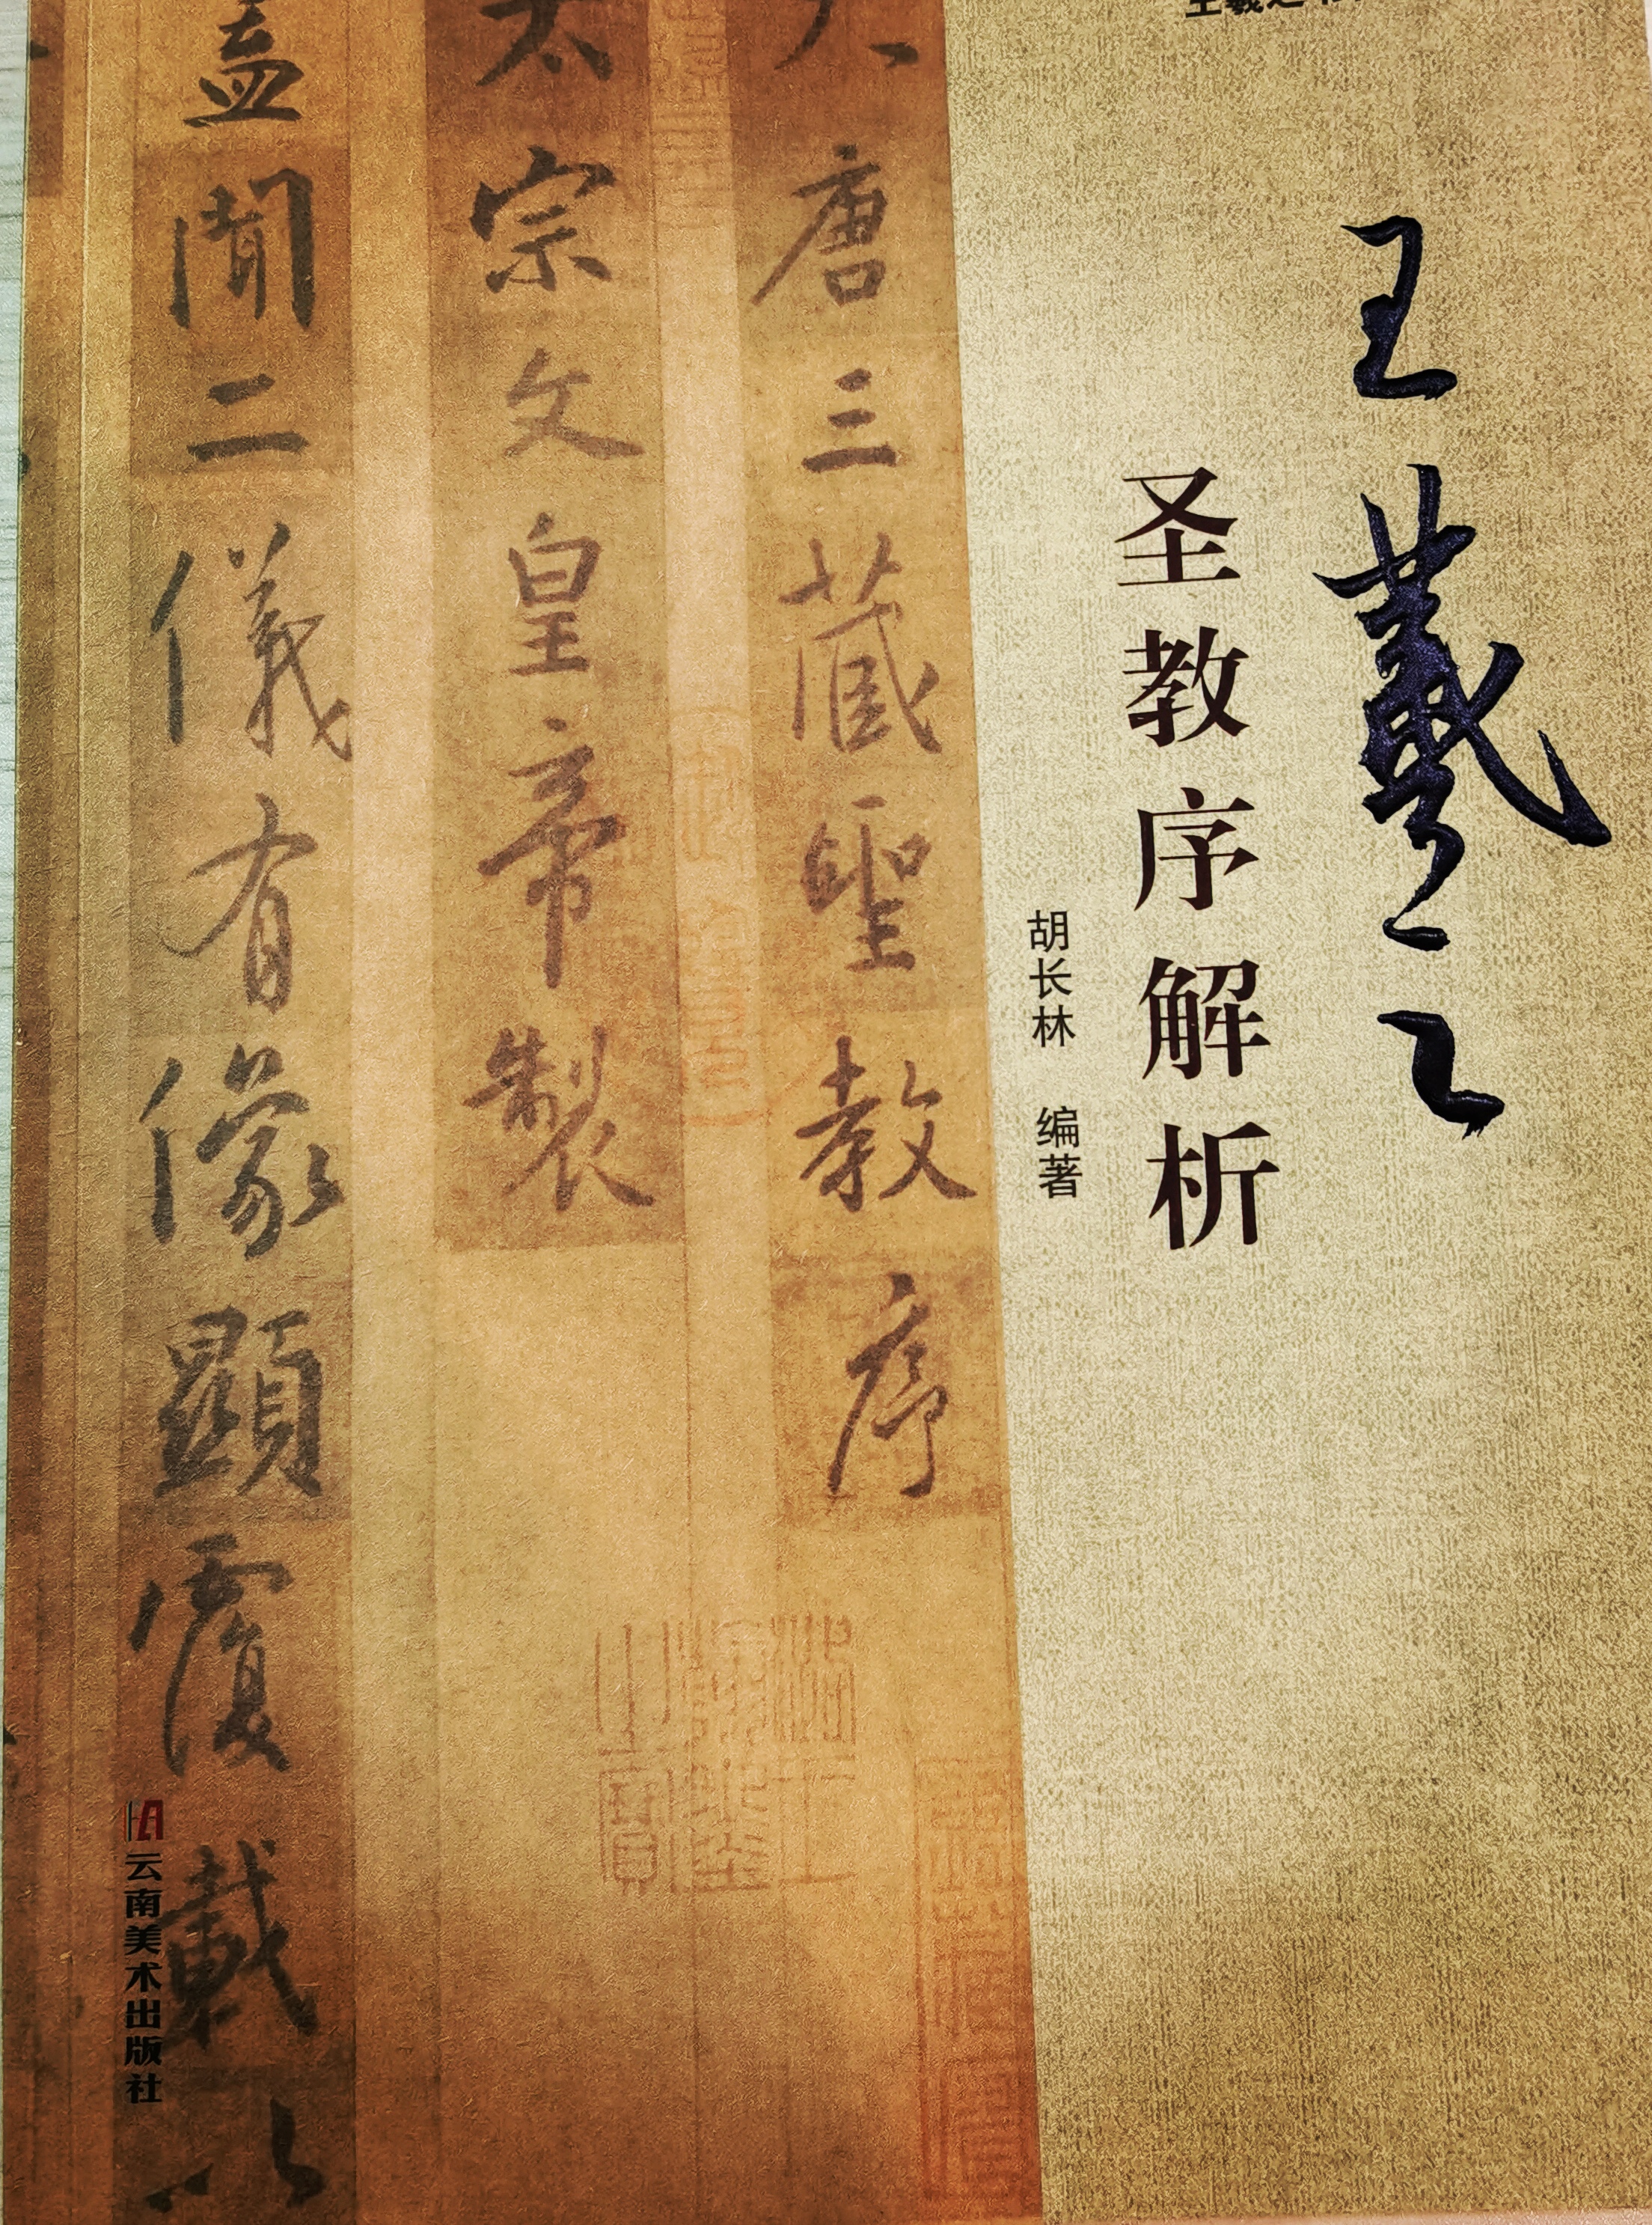 王羲之
圣教序解析
胡长林 编著
大唐三藏聖教序
太宗文皇帝製
蓋聞二儀有像顯覆載以
云南美术出版社